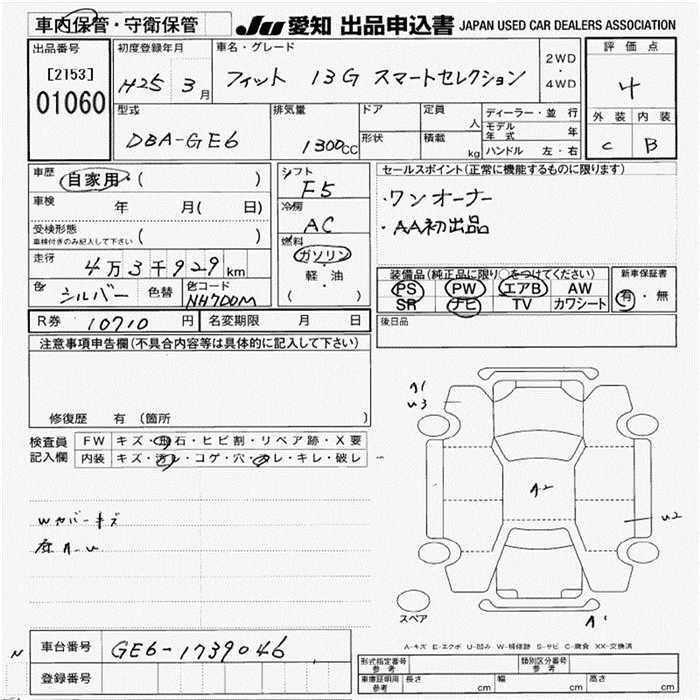 車内保管・守衛保管
JU 愛知 出品申込書 JAPAN USED CAR DEALERS ASSOCIATION
出品番号 初度登録年月 車名・グレード 評価点
[2153] 2WD・4WD
01060 H25 3月 フィット 13G スマートセレクション 4
型式 排気量 ドア 定員 人 ディーラー・並行 外装 内装
DBA-GE6 1300cc 形状 積載 kg モデル年式 年 C B
ハンドル 左・右
車歴 自家用・( ) シフト F5 セールスポイント(正常に機能するものに限ります)
車検 年 月( 日) 冷房 AC ・ワンオーナー
受検形態 ( ) ・AA初出品
車検付きのみ記入して下さい
燃料 ガソリン・軽・油 ( )
走行 4万3千929km
装備品(純正品に限り○をつけてください) 新車保証書
色 シルバー 色替 色コード NH700M PS PW エアB AW 有・無
SR ナビ TV カワシート
R券 10710円 名変期限 月 日 後日品
注意事項申告欄(不具合内容等は具体的に記入して下さい)
修復歴 有 (箇所 )
検査員記入欄 FW キズ・飛石・ヒビ割・リペア跡・X要
内装 キズ・汚レ・コゲ・穴・スレ・キレ・破レ
A1
U3
A2
U2
Wカバーキズ
A1
スペア
A-キズ E-エクボ U-凹み W-補修跡 S-サビ C-腐食 XX-交換済
N 車台番号 GE6-1739046
登録番号
形式指定番号 参考 類別区分番号 参考
車庫証明用 参考 長さ cm 幅 cm 高さ cm